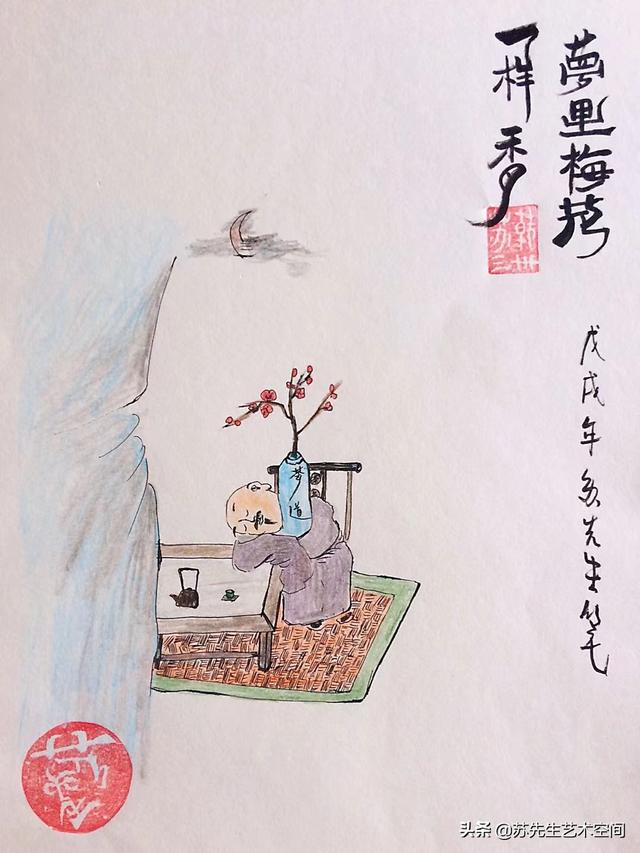 夢里梅花
一样香
戊戌年苏先生笔
茶道
头条 @苏先生艺术空间